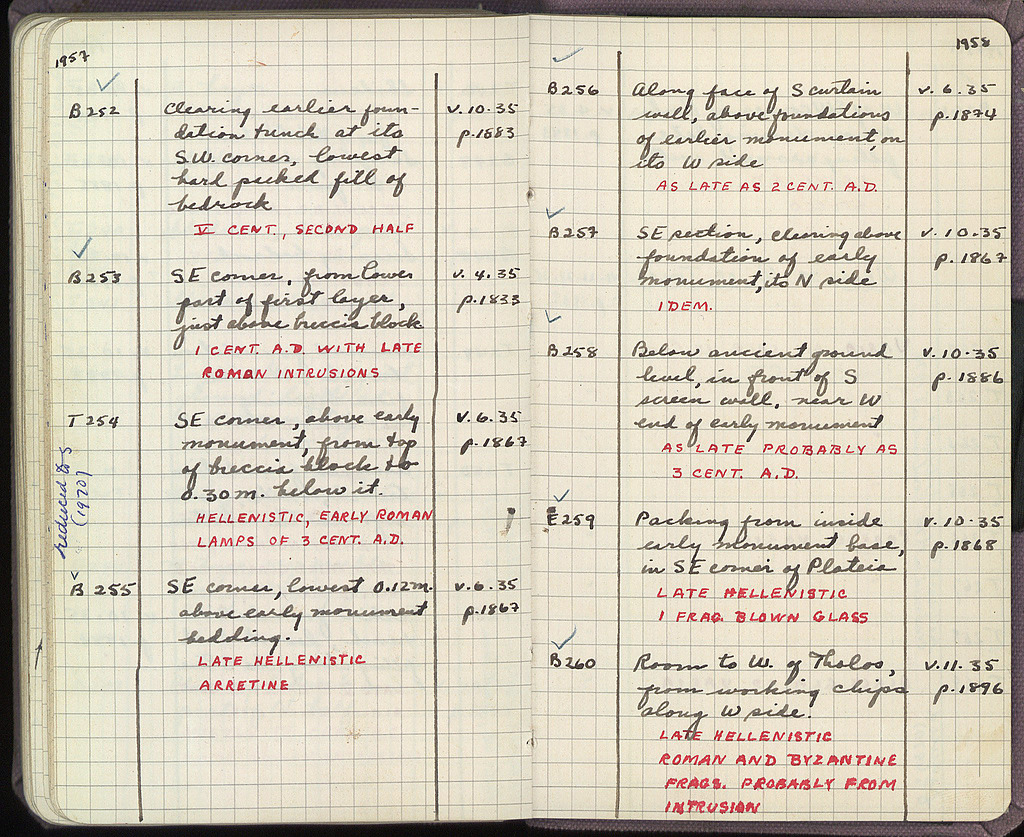 1957
B252 Clearing earlier foun- V.10.35
dation trench at its p.1883
S.W. corner, lowest
hard packed fill of
bedrock
V CENT., SECOND HALF
B253 SE corner, from lower V.4.35
part of first layer, p.1833
just above breccia block
1 CENT. A.D. WITH LATE
ROMAN INTRUSIONS
T254 SE corner, above early V.6.35
monument, from top p.1867
of breccia block to
0.30m. below it.
HELLENISTIC, EARLY ROMAN
LAMPS OF 3 CENT. A.D.
reduced to s
(1970)
B255 SE corner, lowest 0.12m. V.6.35
above early monument p.1867
bedding.
LATE HELLENISTIC
ARRETINE
1958
B256 Along face of S curtain V.6.35
wall, above foundations p.1874
of earlier monument, on
its W side
AS LATE AS 2 CENT. A.D.
B257 SE section, clearing above V.10.35
foundation of early p.1867
monument, its N side
IDEM.
B258 Below ancient ground V.10.35
level, in front of S p.1886
screen wall, near W
end of early monument
AS LATE PROBABLY AS
3 CENT. A.D.
E259 Packing from inside V.10.35
early monument base, p.1868
in SE corner of Plateia
LATE HELLENISTIC
1 FRAG. BLOWN GLASS
B260 Room to W. of Tholos, V.11.35
from working chips p.1896
along W side.
LATE HELLENISTIC
ROMAN AND BYZANTINE
FRAGS. PROBABLY FROM
INTRUSION